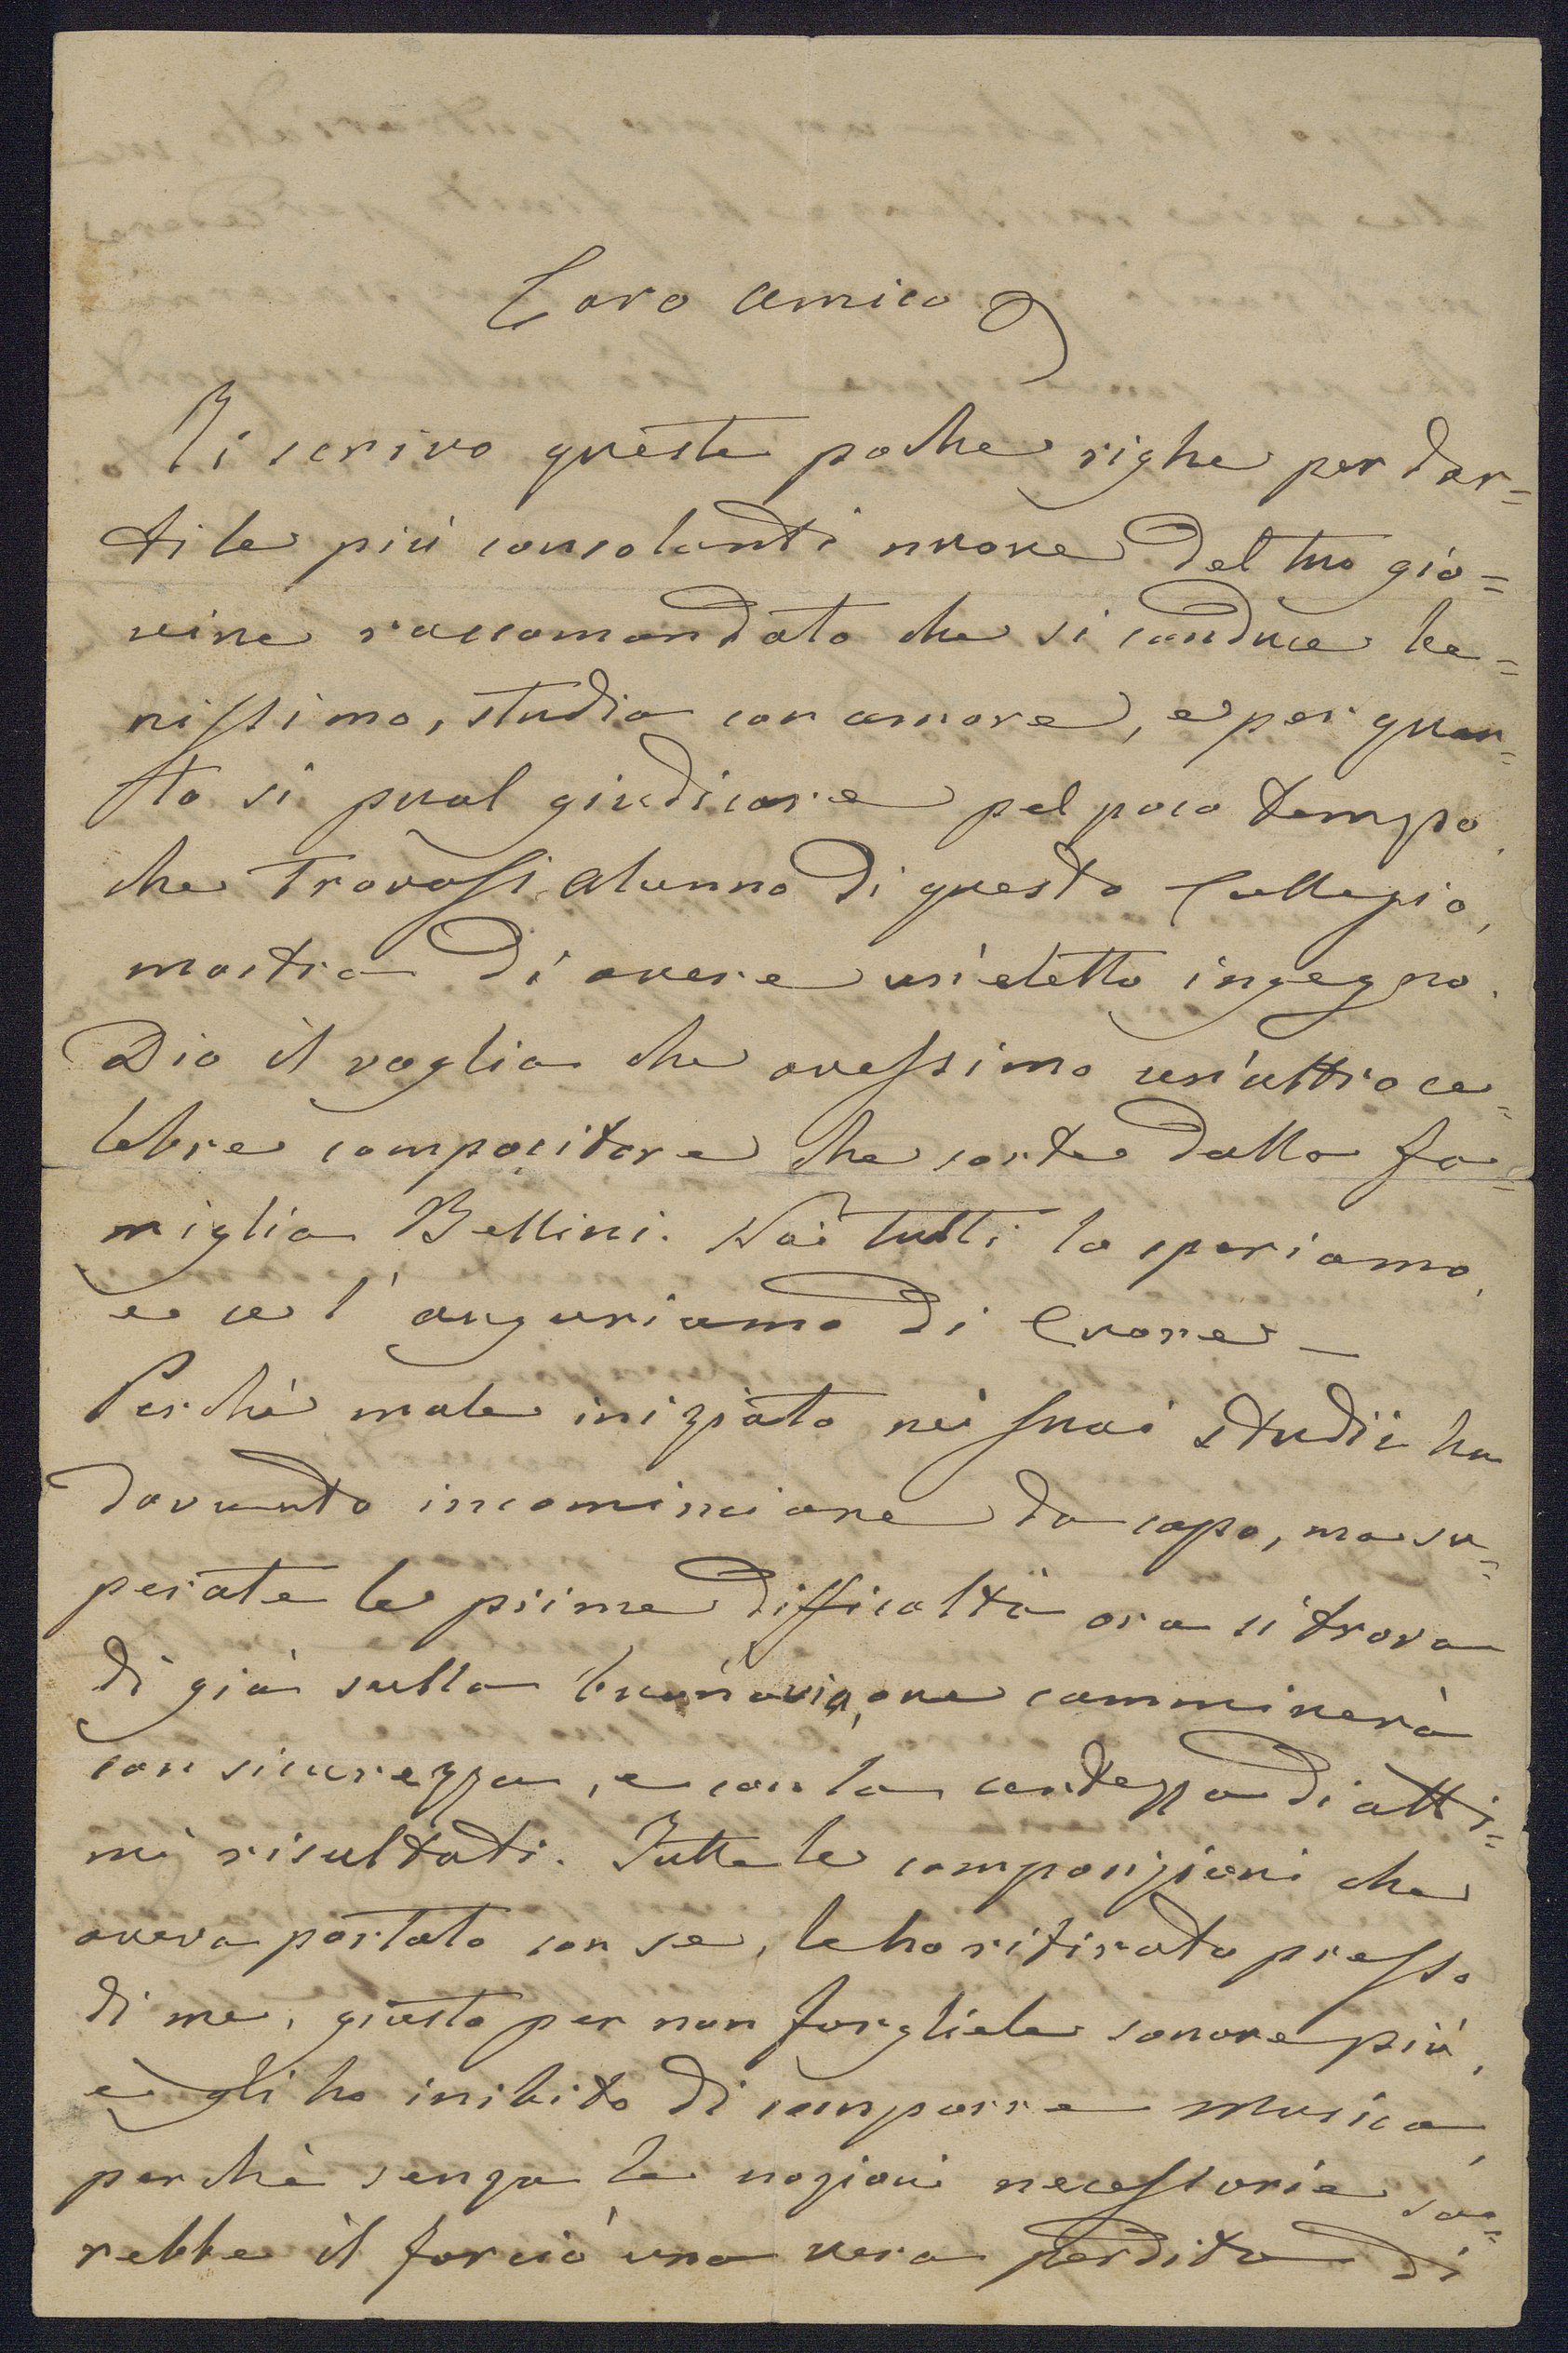 Caro amico
Ti scrivo queste poche righe per dar=
ti le più consolanti nuove del tuo gio=
vine raccomandato che si conduce be=
nissimo, studia con amore, e per quan=
to si puol giudicare pel poco tempo
che trovasi alunno di questo Collegio,
mostra di avere un'eletto ingegno.
Dio il voglia che avessimo un'altro ce=
lebre compositore che sorte dalla fa=
miglia Bellini. Noi tutti lo speriamo,
e ce l'auguriamo di Cuore _
Perchè male iniziato nei suoi studii ha
dovuto incominciare da capo, ma su=
perate le prime difficoltà ora si trova
di già sulla buona via, ove camminerà
con sicurezza, e con la certezza di otti=
mi risultati. Tutte le composizioni che
aveva portato con se, le ho ritirato presso
di me, giusto per non fargliele sonare più,
e gli ho inibito di comporre musica,
perchè senza le nozioni necessarie sa=
rebbe il farciò una vera perdita di